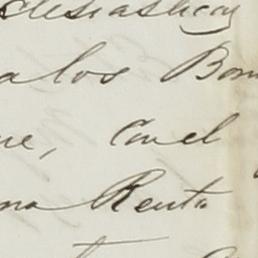 clesiasticas
a los Bon
ne, con el
na Renta